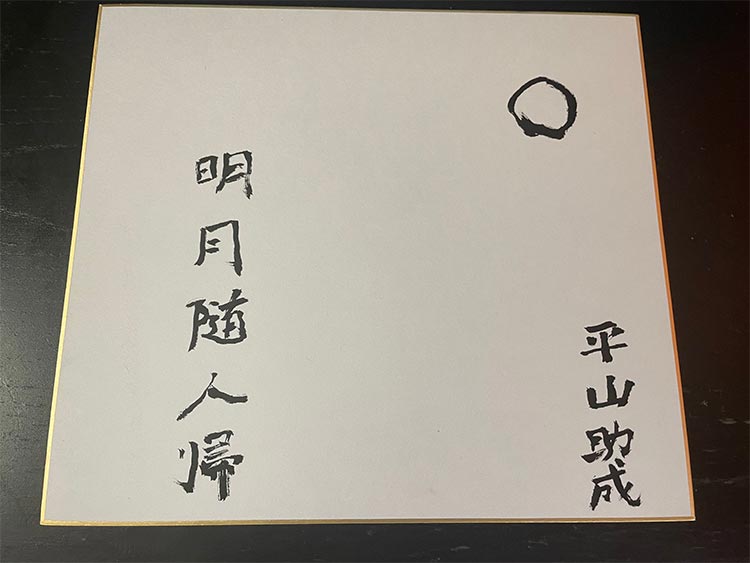 平山助成
明月随人帰